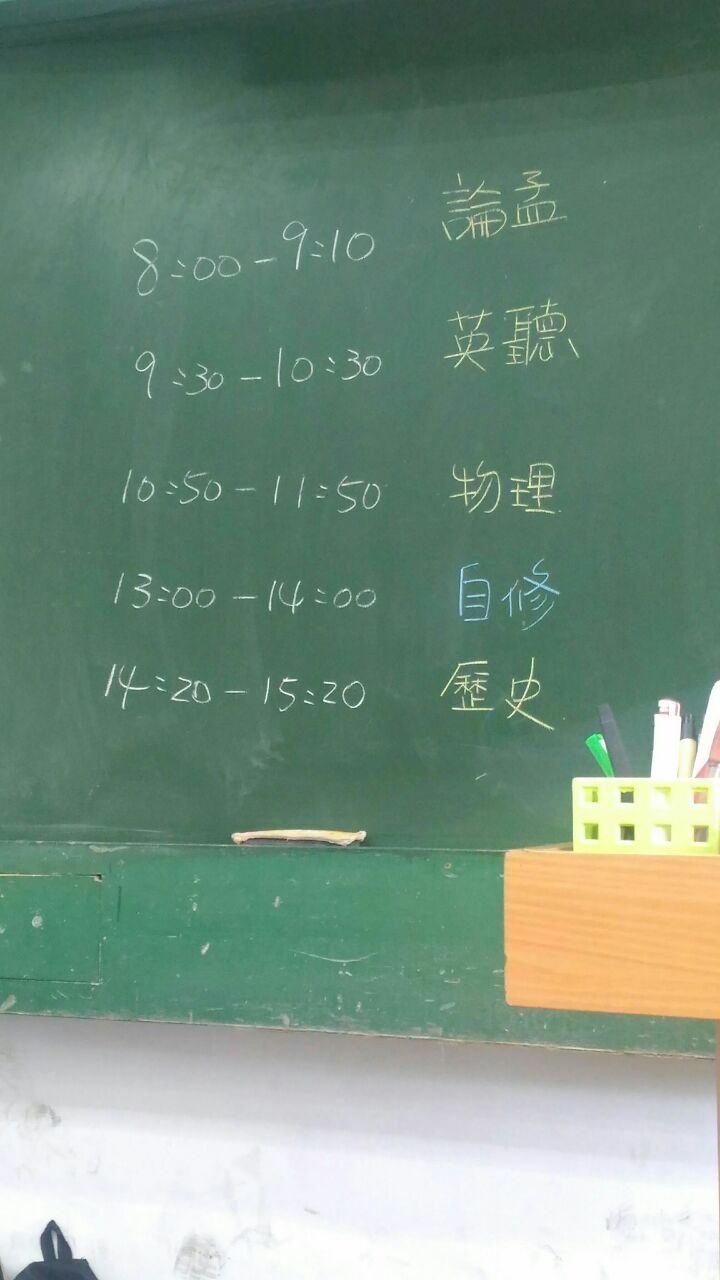 8:00-9:10 論孟
9:30-10:30 英聽
10:50-11:50 物理
13:00-14:00 自修
14:20-15:20 歷史